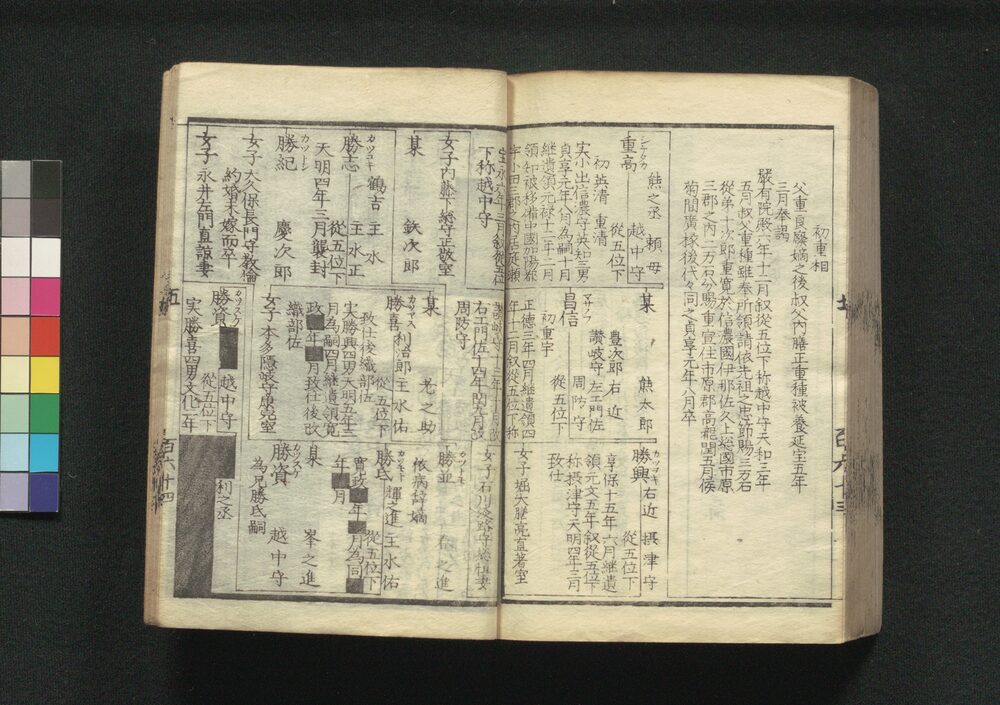 初重相
父重良廃嫡之後叔父内膳正重種被養延宝五年
三月奉謁
厳有院殿八年十二月叙従五位下称越中守天和三年
五月叔父重種雖奉所領請依先祖之忠節賜三万石
従弟十次郎重寛於信濃國伊那佐久上総國市原
三郡之内二万石分賜重宣住市原郡高瀧聞五月候
菊間廣椽後代々同之貞享元年八月卒
シゲタカ
重高
熊之丞 頼母
越中守
従五位下
初英清 重清
実小出信濃守英知三男
貞享元年八月為嗣十月
継遺領元禄十二年二月
領知被移備中國加陽都
宇小田三郡之内居庭瀬
宝永六年三月叙従五位
下称越中守
女子内藤下総守正敬室
某 鉄次郎
カツユキ
勝志
鶴吉 主水
主水正
従五位下
天明四年三月襲封
カツトシ
勝紀 慶次郎
女子大久保長門守教倫
約婚未嫁而卒
女子永井左門直諒妻
某 熊太郎
マサノブ
昌信
豊次郎 右近
讃岐守 左エ門佐
周防守
従五位下
初重宇
正徳三年四月継遺領四
年十二月叙従五位下称
讃岐守十三年十一月改
右エ門佐十四年閏九月改
周防守
某 光之助
カツヨシ
勝喜 利治郎 主水佑
従五位下
致仕後織部佐
実勝興四男天明五年三
月為嗣四月継遺領寛
政■年■月致仕後改
織部佐
女子本多隠岐守康完室
カツスケ
勝資■ 越中守
従五位下
実勝喜四男文化二年
カツオキ
勝興 右近 摂津守
従五位下
享保十五年六月継遺
領元文五年叙従五位下
称摂津守天明四年三月
致仕
女子堀大膳亮直著室
女子石川淡路守総恒妻
勝並 ■之進
依病辞嫡
カツモト
勝氏 暉之進 主水佑
従五位下
寛政■年■月為同■
年■月
某 峯之進
カツスケ
勝資 越中守
為兄勝氏嗣
■利之丞
五
百六十三
百六十四